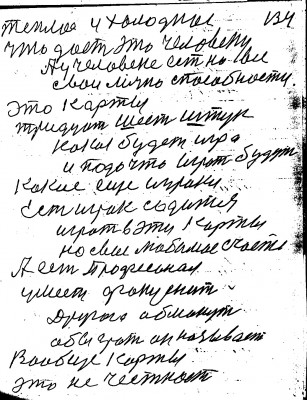 теплоя и холодное 134
что дает это человеку
А у человека ест на ово
свои лично способности
это карты
тридцат шест штук
какая будет игра
и подо что играт будет
какие еще игроки
Ест играк садится
играт в эти карты
но свое любимое счасте
А ест професионал
умеет
Другова обманут
абиграт он называет
Вообще карты
это не честност